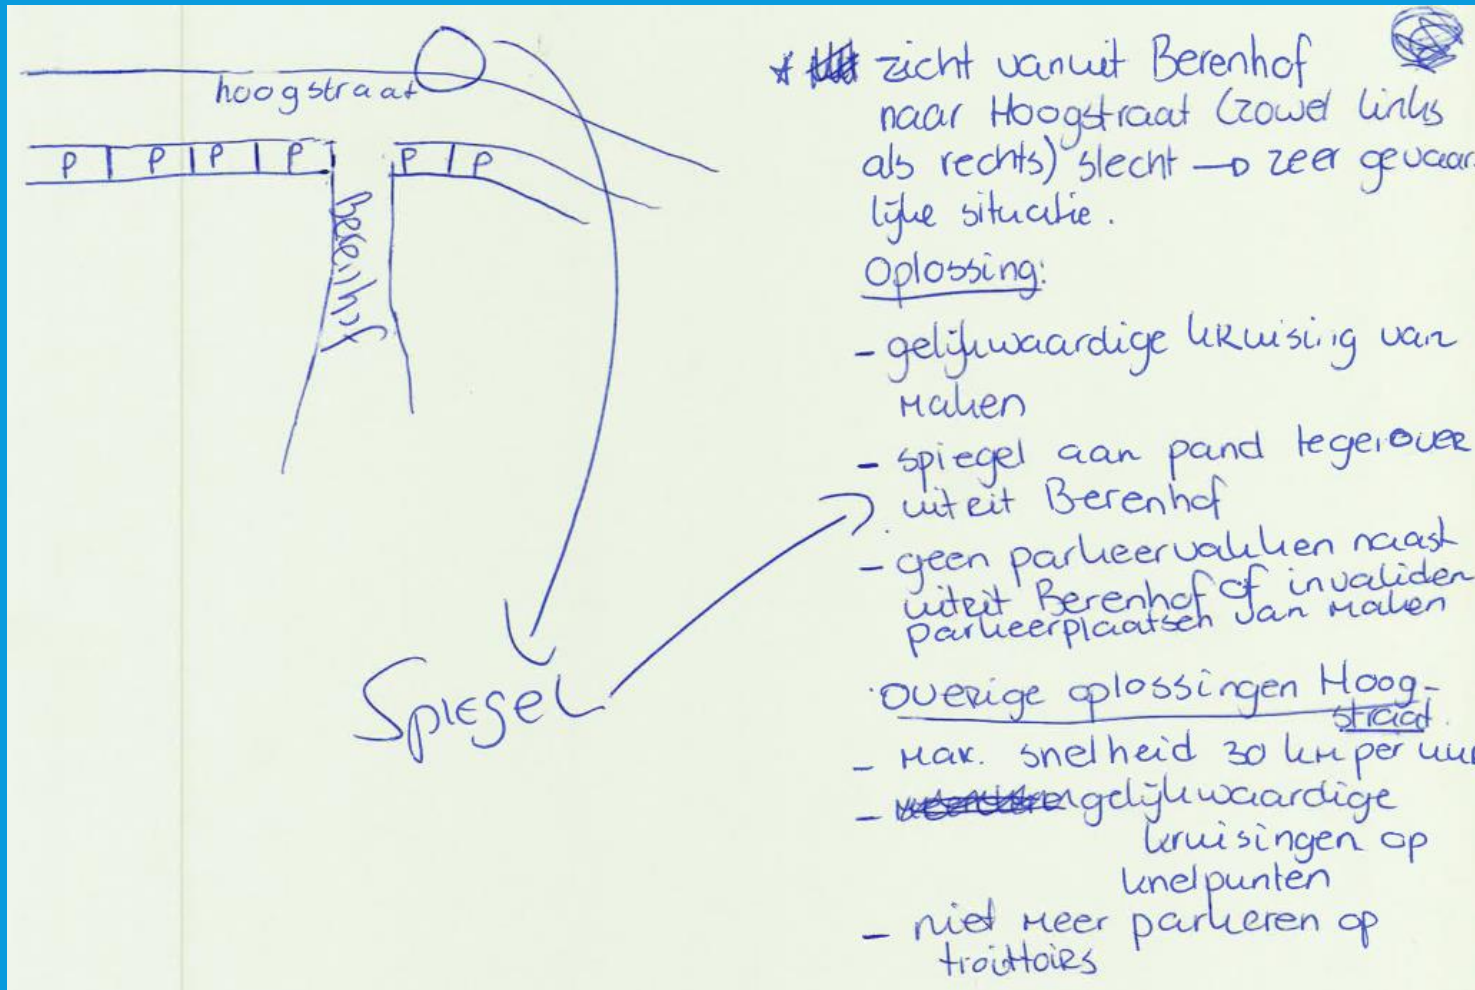 hoogstraat
P P P P P P
Berenhof
Spiegel
* zicht vanuit Berenhof
naar Hoogstraat (zowel links
als rechts) slecht → zeer gevaar-
lijke situatie.
Oplossing:
- gelijkwaardige kruising van
maken
- spiegel aan pand tegenover
uitrit Berenhof
- geen parkeervakken naast
uitrit Berenhof of invaliden
parkeerplaatsen van maken
Overige oplossingen Hoog-
straat.
- Max. snelheid 30 km per uur
- gelijkwaardige
kruisingen op
knelpunten
- niet meer parkeren op
troittoirs